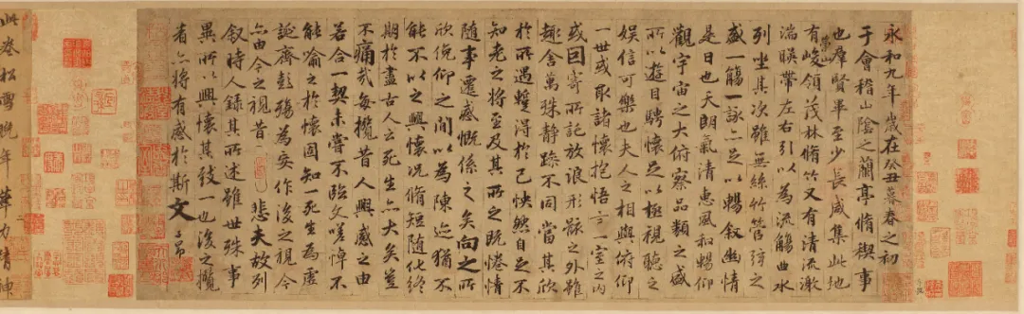 永和九年歲在癸丑暮春之初
于會稽山陰之蘭亭脩禊事
也羣賢畢至少長咸集此地
有崇山峻領茂林脩竹又有清流激
湍暎帶左右引以為流觴曲水
列坐其次雖無絲竹管弦之
盛一觴一詠亦足以暢敘幽情
是日也天朗氣清惠風和暢仰
觀宇宙之大俯察品類之盛
所以遊目騁懷足以極視聽之
娛信可樂也夫人之相與俯仰
一世或取諸懷抱悟言一室之內
或因寄所託放浪形骸之外雖
趣舍萬殊靜躁不同當其欣
於所遇蹔得於己怏然自足不
知老之將至及其所之既惓情
隨事遷感慨係之矣向之所
欣俛仰之間以為陳迹猶不
能不以之興懷況脩短隨化終
期於盡古人云死生亦大矣豈
不痛哉每攬昔人興感之由
若合一契未嘗不臨文嗟悼不
能喻之於懷固知一死生為虛
誕齊彭殤為妄作後之視今
亦由今之視昔悲夫故列
敘時人錄其所述雖世殊事
異所以興懷其致一也後之攬
者亦將有感於斯文 子昂
此卷松雪晚年筆力精神